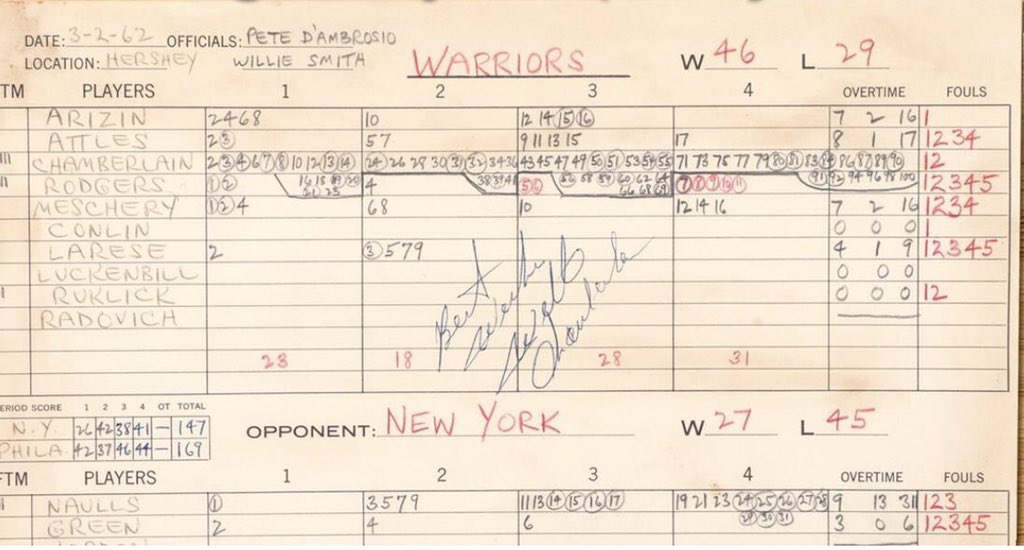 DATE: 3-2-62 OFFICIALS: PETE D'AMBROSIO
LOCATION: HERSHEY WILLIE SMITH WARRIORS W 46 L 29
TM PLAYERS 1 2 3 4 OVERTIME FOULS
ARIZIN 2 4 6 8 10 12 14 15 16 7 2 16 1
ATTLES 2 3 5 7 9 11 13 15 17 8 1 17 1234
CHAMBERLAIN 2 3 4 6 7 8 10 12 13 14 24 26 28 30 31 32 34 36 43 45 47 49 50 51 53 54 55 71 73 75 77 79 80 81 83 84 86 87 89 90 12
RODGERS 1 2 16 18 20 21 23 4 38 39 41 5 6 56 58 59 60 62 64 66 68 69 7 8 9 10 11 91 92 94 96 98 100 12345
MESCHERY 1 2 4 6 8 10 12 14 16 7 2 16 1234
CONLIN 0 0 0 1
LARESE 2 3 5 7 9 4 1 9 12345
LUCKENBILL 0 0 0
RUKLICK 0 0 0 12
RADOVICH
Best Wishes
Wilt Chamberlain
23 18 28 31
ERIOD SCORE 1 2 3 4 OT TOTAL
N.Y. 26 42 38 41 — 147
PHILA. 42 37 46 44 — 169
OPPONENT: NEW YORK W 27 L 45
FTM PLAYERS 1 2 3 4 OVERTIME FOULS
NAULLS 1 3 5 7 9 11 13 14 15 16 17 19 21 23 24 25 26 27 28 29 30 31 9 13 31 123
GREEN 2 4 6 3 0 6 12345